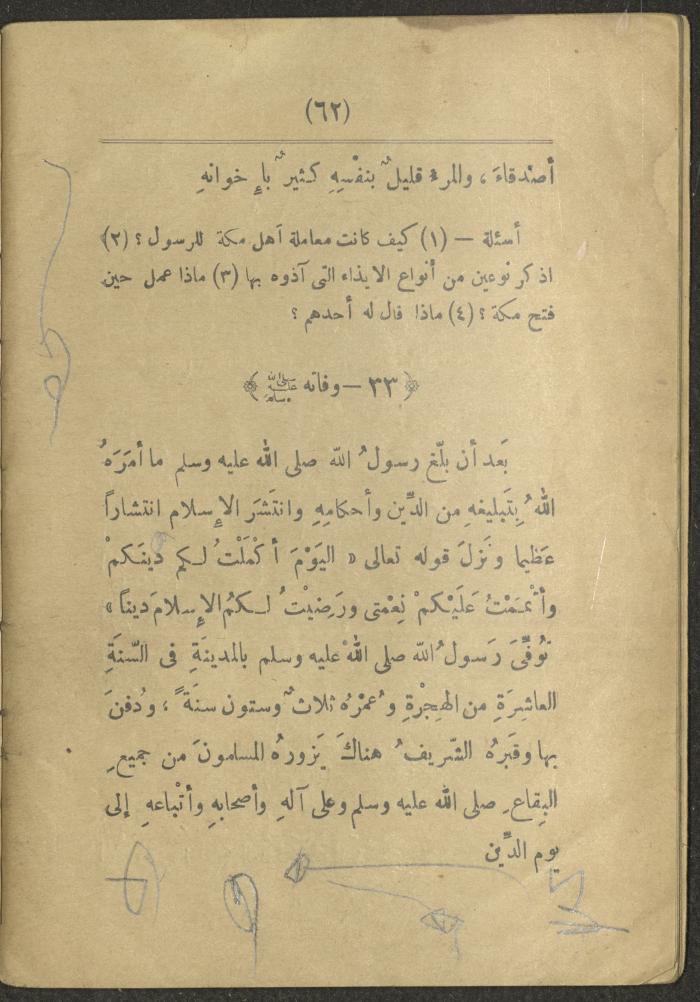 (٦٢)
أصْدقاءَ ، والمرءُ قليلٌ بنفْسِهِ كثيرٌ بإِخوانهِ
أسئلة — (١) كيف كانت معاملة أهل مكة للرسول ؟ (٢)
اذكر نوعين من أنواع الايذاء التى آذوه بها (٣) ماذا عمل حين
فتح مكة ؟ (٤) ماذا قال له أحدهم ؟
﴿ ٣٣ — وفاته صلى الله عليه وسلم ﴾
بَعد أن بلّغ رسولُ اللّه صلى الله عليه وسلم ما أمرَهُ
اللهُ بِتَبليغهِ من الدِّين وأحكامِهِ وانتَشرَ الإِسلام انتشاراً
عَظيما ونَزلَ قوله تعالى « اليَوْمَ أكْمَلْتُ لكم دينَكمْ
وأتْممْتُ عَلَيْكمْ نِعْمتى ورَضِيْتُ لكمُ الإِسلامَ ديناً »
تُوفِّىَ رَسولُ اللّه صلى اللهُ عليه وسلم بالمدينَةِ فى السّنةِ
العاشِرَةِ من الهِجْرةِ وعُمْرُه ثلاثٌ وستون سنَةً ، ودُفنَ
بها وقَبرُه الشّريفُ هناكَ يَزورُه المسلمونَ من جميعِ
البِقاعِ صلى الله عليه وسلم وعلى آلهِ وأصحابهِ وأتْباعهِ إلى
يوم الدِّين